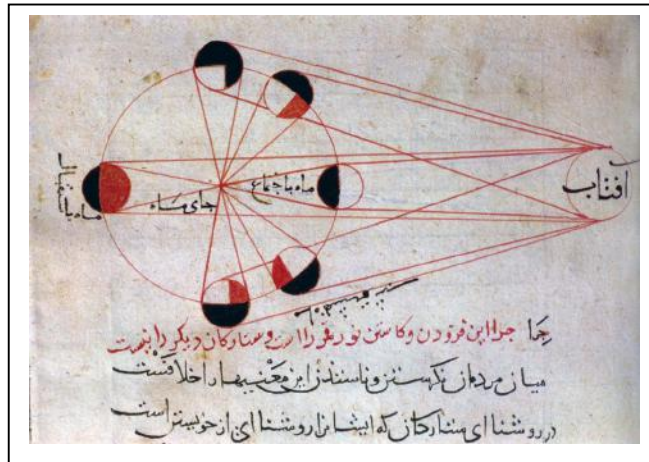 افتاب
ماه باجتماع
جای ماه
ماه باستقبال
چرا چرا این فزودن و کاستن نور قمر را است و ستارکان دیکر را نیست
میان مردمان این
در روشنای ستارکان که ایشانرا روشنای از خویشتن است